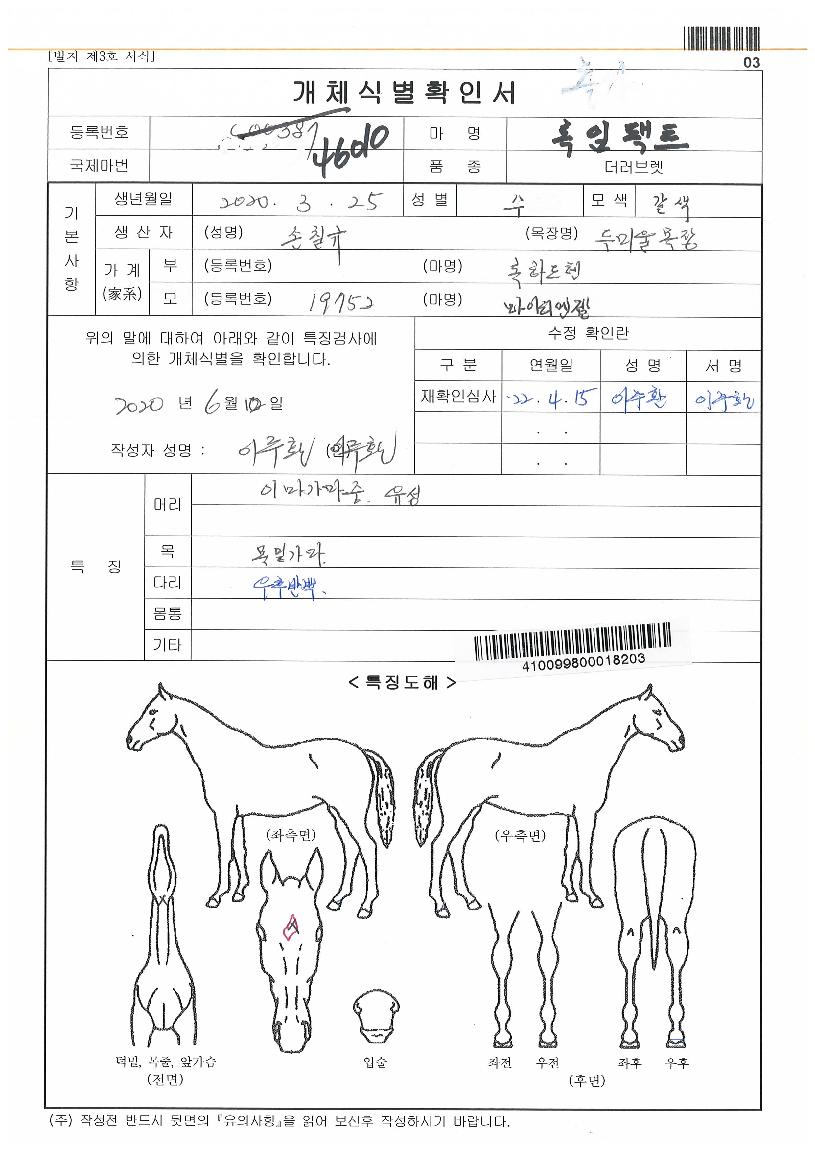 [별지 제3호 서식]
03
개체식별확인서
등록번호 46010 마 명 혹임팩트
국제마번 품 종 더러브렛
기본사항
생년월일 2020. 3. 25 성 별 수 모 색 갈색
생 산 자 (성명) 손칠규 (목장명) 두미울목장
가 계 (家系) 부 (등록번호) (마명) 혹하드헌
모 (등록번호) 19752 (마명) 마이티엔젤
위의 말에 대하여 아래와 같이 특징검사에
의한 개체식별을 확인합니다.
2020 년 6월 10 일
작성자 성명 : 이주환
수정 확인란
구 분 연월일 성 명 서 명
재확인심사 '22. 4. 15 이주환 이주환
. .
. .
특 징
머리 이마가마중. 유성
목 목밑가마.
다리 우후반백.
몸통
기타
410099800018203
< 특징도해 >
(좌측면) (우측면)
턱밑, 목줄, 앞가슴
(전면)
입술
좌전 우전 좌후 우후
(후면)
(주) 작성전 반드시 뒷면의 『유의사항』을 읽어 보신후 작성하시기 바랍니다.